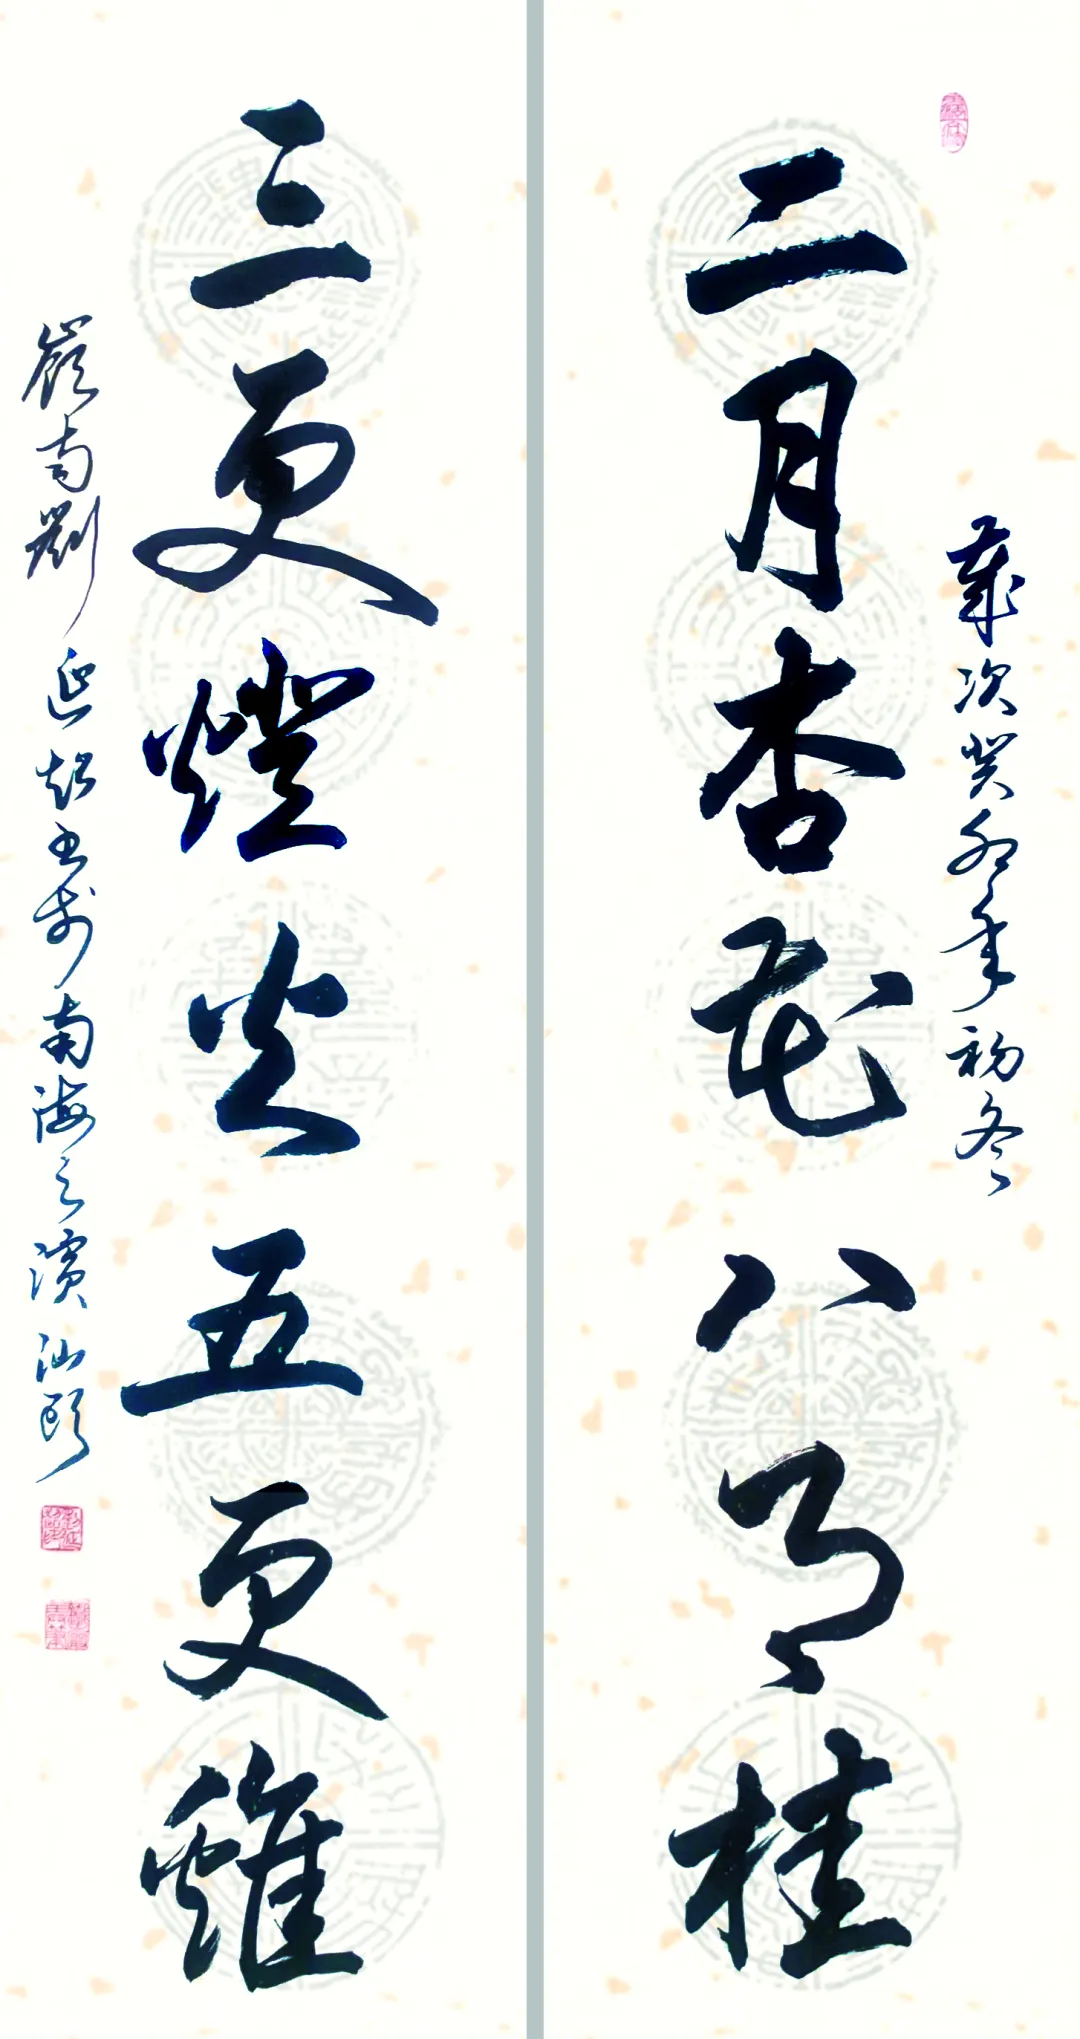 歲次癸卯年初冬
二月杏花八月桂
三更燈火五更雞
嶺南劉延超書於南海之濱汕頭